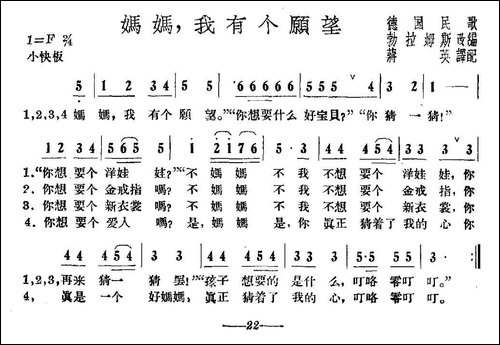 媽媽，我有个願望
德国民歌
1=F 2/4
勃拉姆斯改編
小快板
蔣英譯配
5 | i i i 2 | 3 i 5 | 6 6 6 6 6 6 | 5 5 5 4 | 3 2 | 1 —
1,2,3,4 媽媽，我有个願望。”“你想要什么好宝貝？”“你猜一猜！”
1.“你想要个洋娃娃？”“不媽媽不我不想要个洋娃娃，你
2.你想要个金戒指嗎？不媽媽不我不想要个金戒指，你
3.你想要个新衣裳嗎？不媽媽不我不想要个新衣裳，你
4.你想要个爱人嗎？是，媽媽是，你眞正猜着了我的心你
4 4 | 4 4 5 4 | 3 3 | 4 4 5 4 | 3 3 3 | 5·5 5 5 | i
1,2,3,再来猜一猜罢！”“孩子想要的是什么，叮咯零叮叮。”
4，眞是一个好媽媽，眞正猜着了我的心，叮咯零叮叮。”
—22—